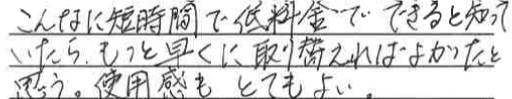 こんなに短時間で低料金でできると知って
いたら、もっと早くに取り替えればよかったと
思う。使用感もとてもよい。